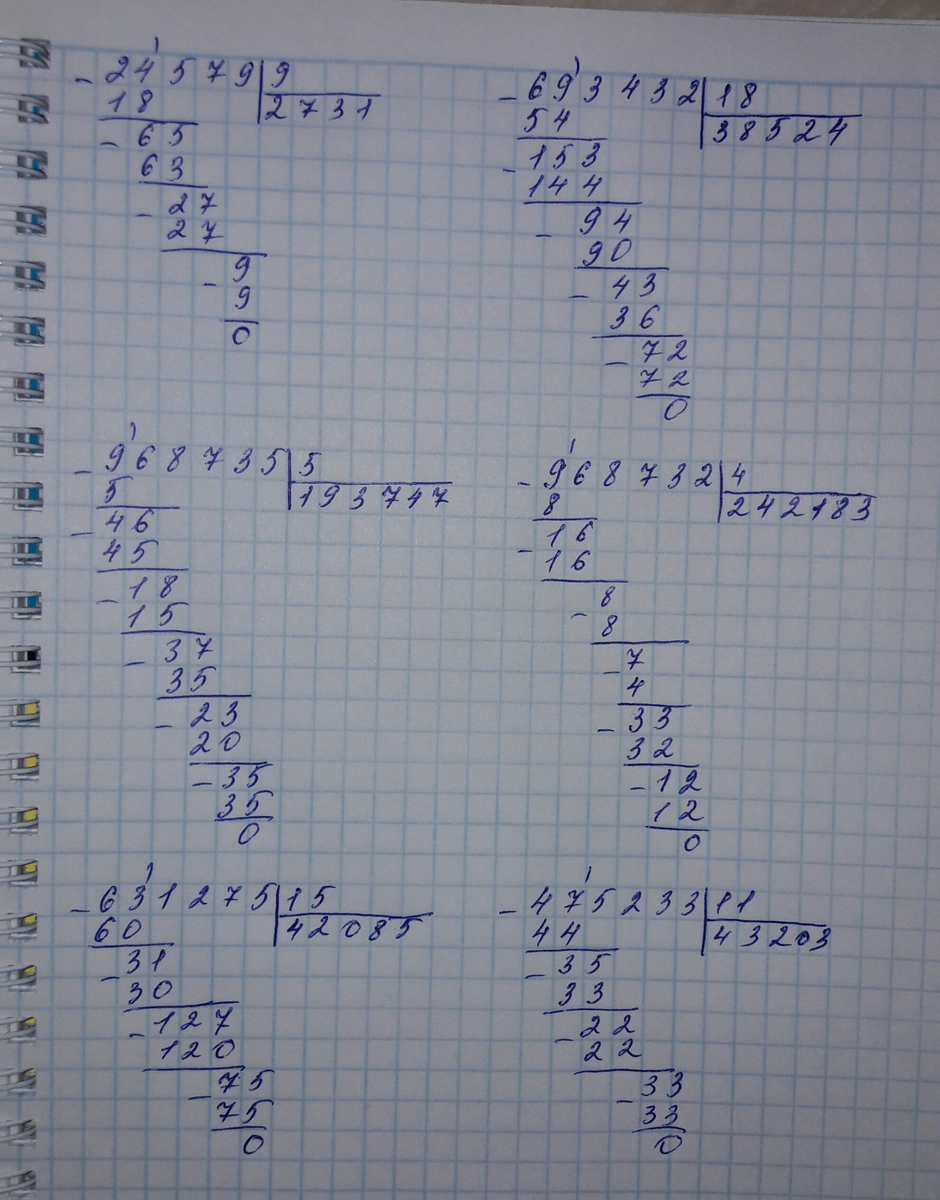 - 24579 | 9
18 2731
- 65
63
- 27
27
- 9
9
0
- 693432 | 18
54 38524
- 153
144
- 94
90
- 43
36
- 72
72
0
- 968735 | 5
5 193747
- 46
45
- 18
15
- 37
35
- 23
20
- 35
35
0
- 968732 | 4
8 242183
- 16
16
- 8
8
- 7
4
- 33
32
- 12
12
0
- 631275 | 15
60 42085
- 31
30
- 127
120
- 75
75
0
- 475233 | 11
44 43203
- 35
33
- 22
22
- 33
33
0